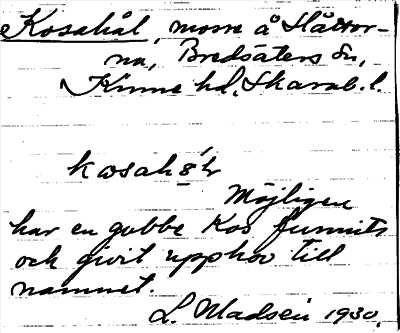 Kosahål, mosse å Slättor-
na, Bredsäters sn,
Kinne hd, Skarab. l.
kosahɷ́l
Möjligen
har en gubbe Kos funnits
och givit upphov till
namnet.
L. Madsén 1930.